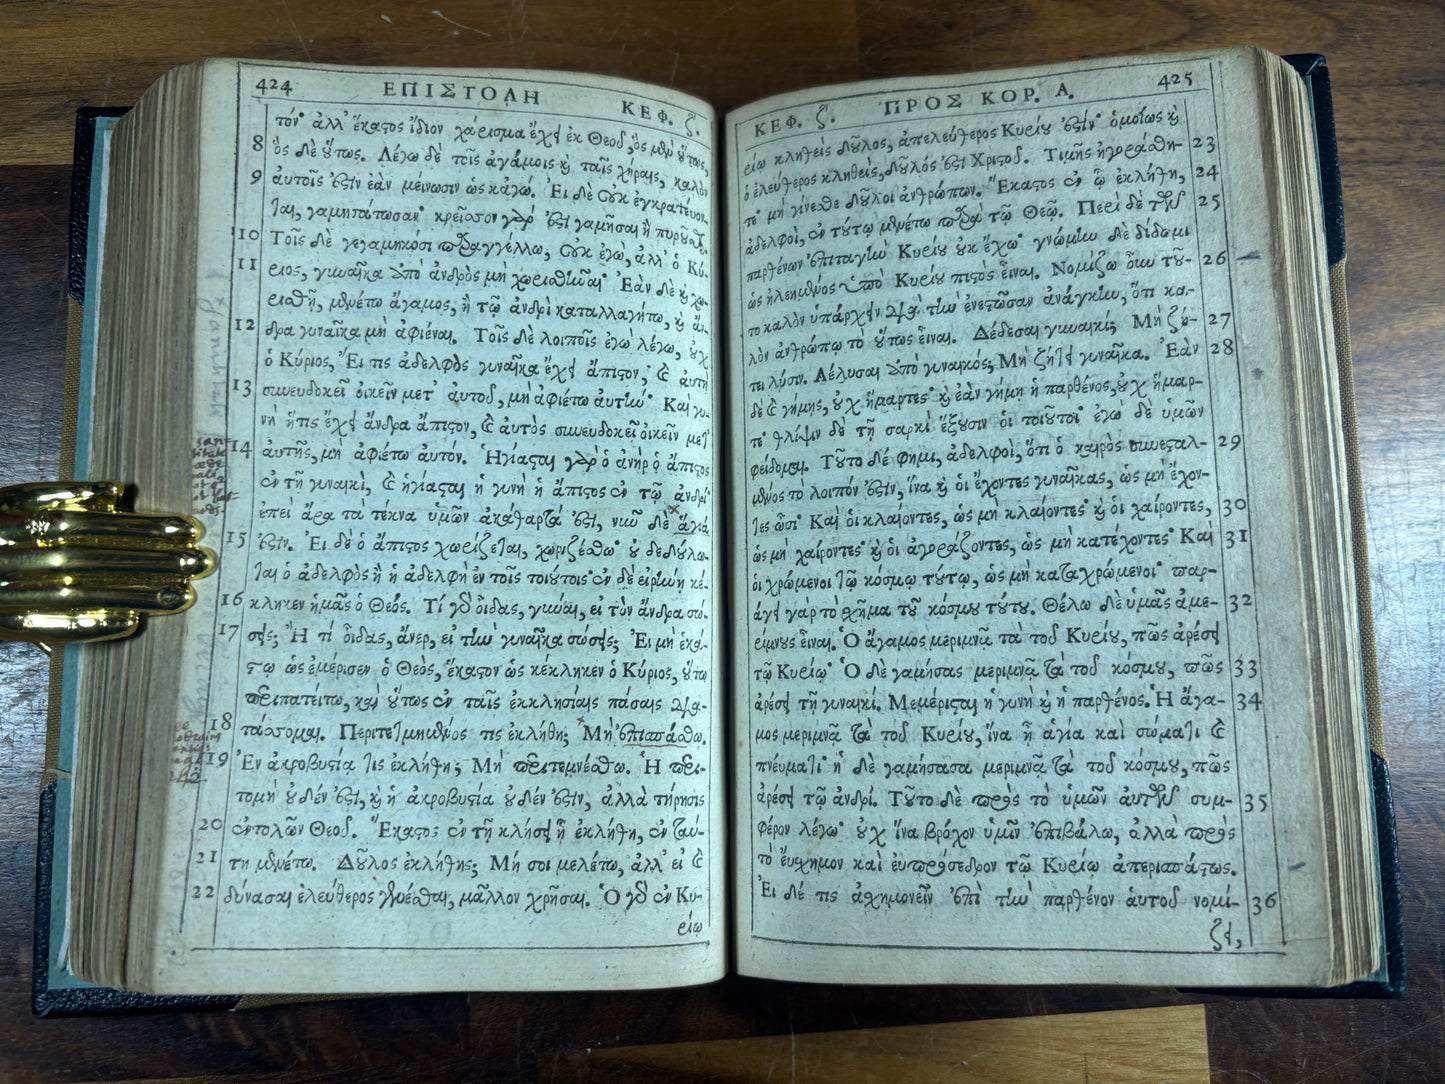 424 ΕΠΙΣΤΟΛΗ ΚΕΦ. ζ.
τόν· ἀλλ' ἕκαςος ἴδιον χάρισμα ἔχει ἐκ Θεοῦ, ὃς μὲν οὕτως,
8 ὃς δὲ οὕτως. Λέγω δὲ τοῖς ἀγάμοις καὶ ταῖς χήραις, καλὸν
9 αὐτοῖς ἐςιν ἐὰν μείνωσιν ὡς κᾀγώ. Εἰ δὲ οὐκ ἐγκρατεύον-
ται, γαμησάτωσαν· κρεῖσσον γάρ ἐςι γαμῆσαι ἢ πυροῦσθαι.
10 Τοῖς δὲ γεγαμηκόσι παραγγέλλω, οὐκ ἐγὼ, ἀλλ' ὁ Κύ-
11 ριος, γυναῖκα ἀπὸ ἀνδρὸς μὴ χωρισθῆναι· Ἐὰν δὲ καὶ χω-
ρισθῇ, μενέτω ἄγαμος, ἢ τῷ ἀνδρὶ καταλλαγήτω, καὶ ἄν-
12 δρα γυναῖκα μὴ ἀφιέναι. Τοῖς δὲ λοιποῖς ἐγὼ λέγω, οὐχ
ὁ Κύριος, Εἴ τις ἀδελφὸς γυναῖκα ἔχει ἄπιςον, καὶ αὐτὴ
13 συνευδοκεῖ οἰκεῖν μετ' αὐτοῦ, μὴ ἀφιέτω αὐτήν· Καὶ γυ-
νὴ ἥτις ἔχει ἄνδρα ἄπιςον, καὶ αὐτὸς συνευδοκεῖ οἰκεῖν μετ'
14 αὐτῆς, μὴ ἀφιέτω αὐτόν. Ἡγίαςαι γὰρ ὁ ἀνὴρ ὁ ἄπιςος
ἐν τῇ γυναικὶ, καὶ ἡγίαςαι ἡ γυνὴ ἡ ἄπιςος ἐν τῷ ἀνδρί·
ἐπεὶ ἄρα τὰ τέκνα ὑμῶν ἀκάθαρτά ἐςι, νῦν δὲ ἅγιά
15 ἐςιν. Εἰ δὲ ὁ ἄπιςος χωρίζεται, χωριζέσθω· οὐ δεδούλω-
ται ὁ ἀδελφὸς ἢ ἡ ἀδελφὴ ἐν τοῖς τοιούτοις· ἐν δὲ εἰρήνῃ κέ-
16 κληκεν ἡμᾶς ὁ Θεός. Τί γὰρ οἶδας, γύναι, εἰ τὸν ἄνδρα σώ-
17 σεις; Ἢ τί οἶδας, ἄνερ, εἰ τὴν γυναῖκα σώσεις; Εἰ μὴ ἑκά-
ςῳ ὡς ἐμέρισεν ὁ Θεὸς, ἕκαςον ὡς κέκληκεν ὁ Κύριος, οὕτω
περιπατείτω, καὶ οὕτως ἐν ταῖς ἐκκλησίαις πάσαις δια-
18 τάσσομαι. Περιτετμημένος τις ἐκλήθη; Μὴ ἐπισπάσθω.
19 Ἐν ἀκροβυςίᾳ τις ἐκλήθη; Μὴ περιτεμνέσθω. Ἡ περι-
τομὴ οὐδέν ἐςι, καὶ ἡ ἀκροβυςία οὐδέν ἐςιν, ἀλλὰ τήρησις
20 ἐντολῶν Θεοῦ. Ἕκαςος ἐν τῇ κλήσει ᾗ ἐκλήθη, ἐν ταύ-
21 τῃ μενέτω. Δοῦλος ἐκλήθης; Μή σοι μελέτω, ἀλλ' εἰ καὶ
22 δύνασαι ἐλεύθερος γενέσθαι, μᾶλλον χρῆσαι. Ὁ γὰρ ἐν Κυ-
ρίῳ
ΚΕΦ. ζ. ΠΡΟΣ ΚΟΡ. Α. 425
ρίῳ κληθεὶς δοῦλος, ἀπελεύθερος Κυρίου ἐςίν· ὁμοίως καὶ
ὁ ἐλεύθερος κληθεὶς, δοῦλός ἐςι Χριςοῦ. Τιμῆς ἠγοράσθη- 23
τε· μὴ γίνεσθε δοῦλοι ἀνθρώπων. Ἕκαςος ἐν ᾧ ἐκλήθη, 24
ἀδελφοὶ, ἐν τούτῳ μενέτω παρὰ τῷ Θεῷ. Περὶ δὲ τῶν 25
παρθένων ἐπιταγὴν Κυρίου οὐκ ἔχω· γνώμην δὲ δίδωμι
ὡς ἠλεημένος ὑπὸ Κυρίου πιςὸς εἶναι. Νομίζω οὖν τοῦ- 26
το καλὸν ὑπάρχειν διὰ τὴν ἐνεςῶσαν ἀνάγκην, ὅτι κα-
λὸν ἀνθρώπῳ τὸ οὕτως εἶναι. Δέδεσαι γυναικί; Μὴ ζή- 27
τει λύσιν. Λέλυσαι ἀπὸ γυναικός; Μὴ ζήτει γυναῖκα. Ἐὰν 28
δὲ καὶ γήμῃς, οὐχ ἥμαρτες· καὶ ἐὰν γήμῃ ἡ παρθένος, οὐχ ἥμαρ-
τε· θλίψιν δὲ τῇ σαρκὶ ἕξουσιν οἱ τοιοῦτοι· ἐγὼ δὲ ὑμῶν
φείδομαι. Τοῦτο δέ φημι, ἀδελφοὶ, ὅτι ὁ καιρὸς συνεςαλ- 29
μένος τὸ λοιπόν ἐςιν, ἵνα καὶ οἱ ἔχοντες γυναῖκας, ὡς μὴ ἔχον-
τες ὦσι· Καὶ οἱ κλαίοντες, ὡς μὴ κλαίοντες· καὶ οἱ χαίροντες, 30
ὡς μὴ χαίροντες· καὶ οἱ ἀγοράζοντες, ὡς μὴ κατέχοντες· Καὶ 31
οἱ χρώμενοι τῷ κόσμῳ τούτῳ, ὡς μὴ καταχρώμενοι· παρ-
άγει γὰρ τὸ σχῆμα τοῦ κόσμου τούτου. Θέλω δὲ ὑμᾶς ἀμε- 32
ρίμνους εἶναι. Ὁ ἄγαμος μεριμνᾷ τὰ τοῦ Κυρίου, πῶς ἀρέσει
τῷ Κυρίῳ· Ὁ δὲ γαμήσας μεριμνᾷ τὰ τοῦ κόσμου, πῶς 33
ἀρέσει τῇ γυναικί. Μεμέριςαι ἡ γυνὴ καὶ ἡ παρθένος. Ἡ ἄγα- 34
μος μεριμνᾷ τὰ τοῦ Κυρίου, ἵνα ᾖ ἁγία καὶ σώματι καὶ
πνεύματι· ἡ δὲ γαμήσασα μεριμνᾷ τὰ τοῦ κόσμου, πῶς
ἀρέσει τῷ ἀνδρί. Τοῦτο δὲ πρὸς τὸ ὑμῶν αὐτῶν συμ- 35
φέρον λέγω· οὐχ ἵνα βρόχον ὑμῖν ἐπιβάλω, ἀλλὰ πρὸς
τὸ εὔσχημον καὶ εὐπρόσεδρον τῷ Κυρίῳ ἀπερισπάςως.
Εἰ δέ τις ἀσχημονεῖν ἐπὶ τὴν παρθένον αὑτοῦ νομί- 36
ζει,